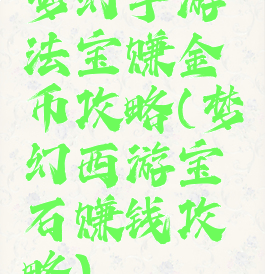 梦幻手游
法宝赚金
币攻略(梦
幻西游宝
石赚钱攻
略)